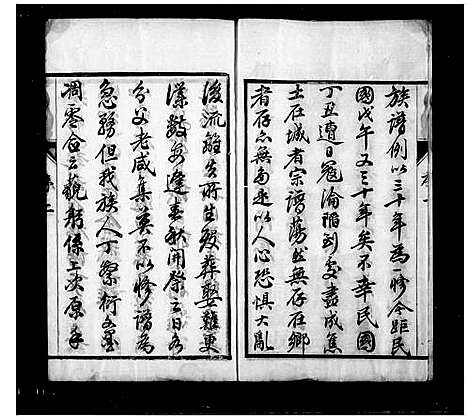 族譜例以三十年為一修今距民
國戊午又三十年矣不幸民國
丁丑遭日寇淪陷到處盡成焦
土在城者宗譜蕩然無存在鄉
者存亦無多迷以人心恐惧大亂
後流離失所生殁葬娶難更
僕數安逢春祈開祭之日各
分父老咸集莫不以修譜為
急務但我族人丁繁衍
凋零合云藐躬係上次原手